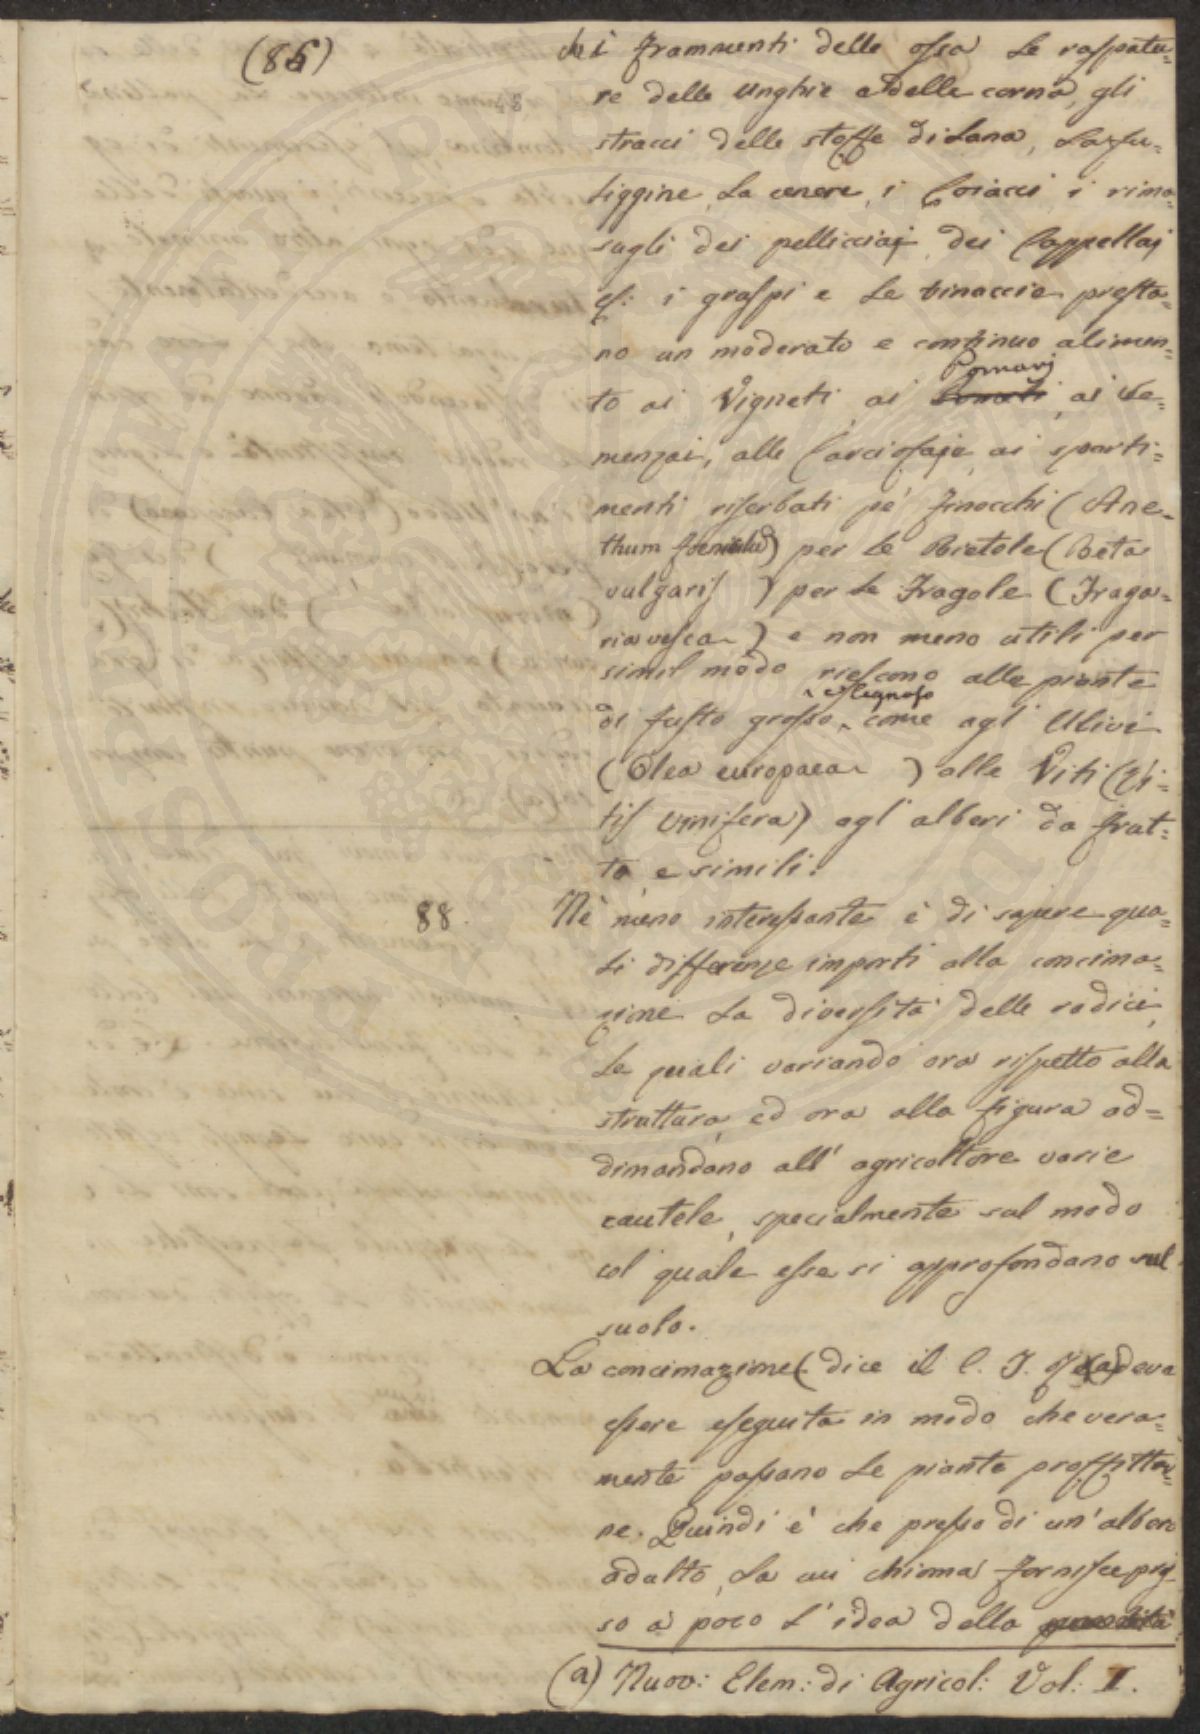 (86)
i frammenti delle ossa le raspatu=
re delle unghie e delle corna, gli
stracci delle stoffe di Lana, La fu=
liggine, La cenere, i Coiacci i rima=
sugli dei pelliciaj, dei Cappellaj
i graspi e le vinaccie presta=
no un moderato e continuo alimen=
Pomarj
to ai Vigneti ai ai Se=
menzai, alle Carciofaje ai sparti=
menti riserbati pe' finocchi (Ane=
thum foeniculu) per le Bietole (Beta
vulgaris ) per le Fragole (Fraga=
ria vesca ) e non meno utili per
simil modo riescono alle piante
e legnoso
di fusto grosso come agl' Ulivi
(Olea europaea ) alle Viti (Vi=
tis vinifera) agl' alberi da frut=
to e simili.
88. Nè meno interessante è di sapere qua=
li differenze importi alla concima=
zione La diversità delle radici,
Le quali variando ora rispetto alla
struttura, ed ora alla figura ad=
dimandano all' agricoltore varie
cautele, specialmente sul modo
col quale esse si approfondano sul
suolo.
La concimazione (dice il C. F. Re(a) deve
essere eseguita in modo che vera=
mente possano le piante proffittar=
ne. Quindi è che presso di un' albero
adulto, La cui chioma fornisce pres=
so a poco l' idea della
(a) Nuov: Elem: di Agricol: Vol: I.